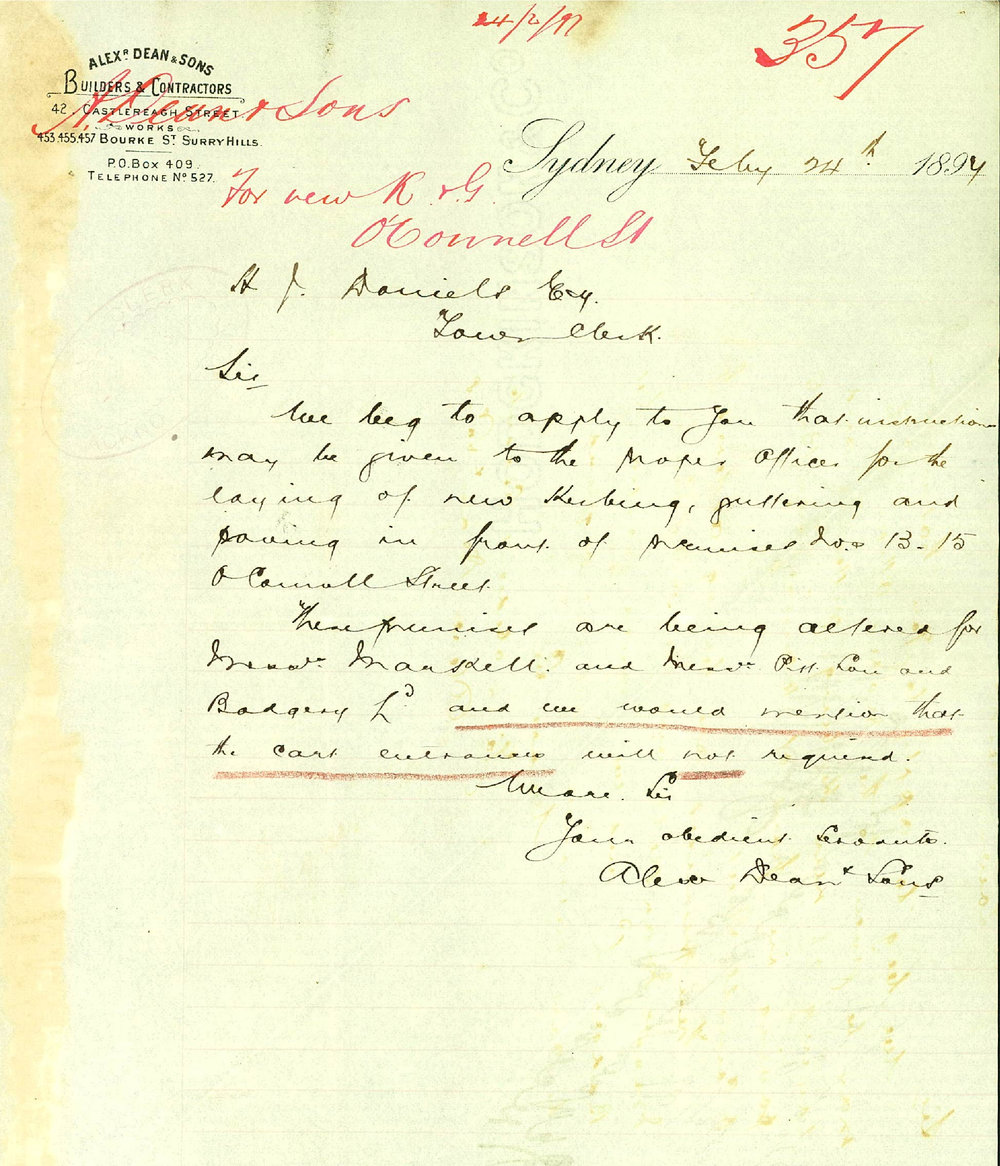 24/2/97
357
ALEXR DEAN & SONS
BUILDERS & CONTRACTORS
42. CASTLEREAGH STREET
WORKS
453.455.457 BOURKE ST SURRY HILLS.
P.O. BOX 409.
TELEPHONE No 527.
A. Dean & Sons
Sydney Feby 24th 1897
For new K & G.
O'Connell St
H J. Daniels Esq.
Town Clerk.
Sir
We beg to apply to You that instructions
may be given to the proper Officer for the
laying of new Kerbing, guttering and
paving in front of premises Nos 13-15
O'Connell Street.
These premises are being altered for
Messrs Maxwell and Messrs Pitt Son and
Badgery Ld and we would mention that
the cart entrances will not required.
We are. Sir
Your obedient Servants.
Alexr Dean & Sons